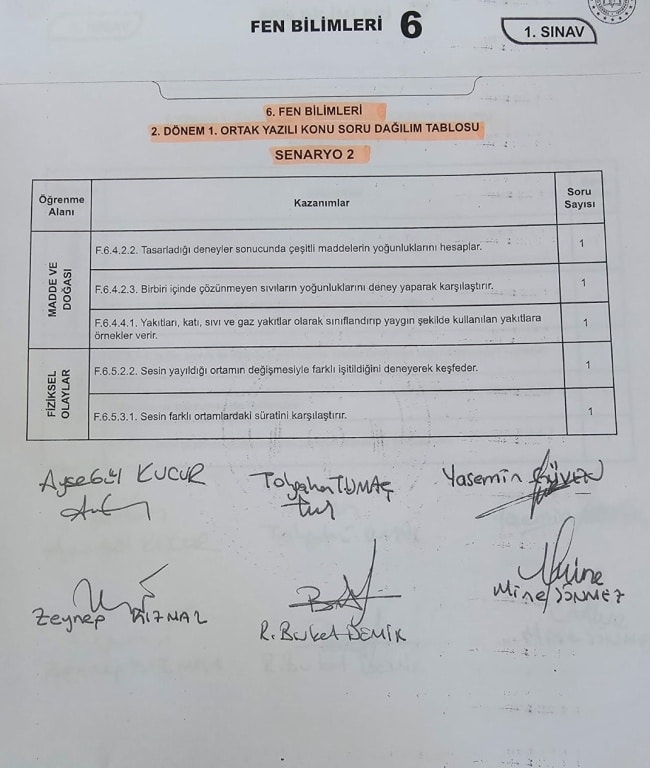 FEN BİLİMLERİ 6
1. SINAV
6. FEN BİLİMLERİ
2. DÖNEM 1. ORTAK YAZILI KONU SORU DAĞILIM TABLOSU
SENARYO 2
Öğrenme Alanı
Kazanımlar
Soru Sayısı
MADDE VE DOĞASI
F.6.4.2.2. Tasarladığı deneyler sonucunda çeşitli maddelerin yoğunluklarını hesaplar.
1
F.6.4.2.3. Birbiri içinde çözünmeyen sıvıların yoğunluklarını deney yaparak karşılaştırır.
1
F.6.4.4.1. Yakıtları, katı, sıvı ve gaz yakıtlar olarak sınıflandırıp yaygın şekilde kullanılan yakıtlara
örnekler verir.
1
FİZİKSEL OLAYLAR
F.6.5.2.2. Sesin yayıldığı ortamın değişmesiyle farklı işitildiğini deneyerek keşfeder.
1
F.6.5.3.1. Sesin farklı ortamlardaki süratini karşılaştırır.
1
Ayşegül KUCUR
Yasemin GÜVEN
Zeynep
R. Buket DEMİK
Mine SÖNMEZ